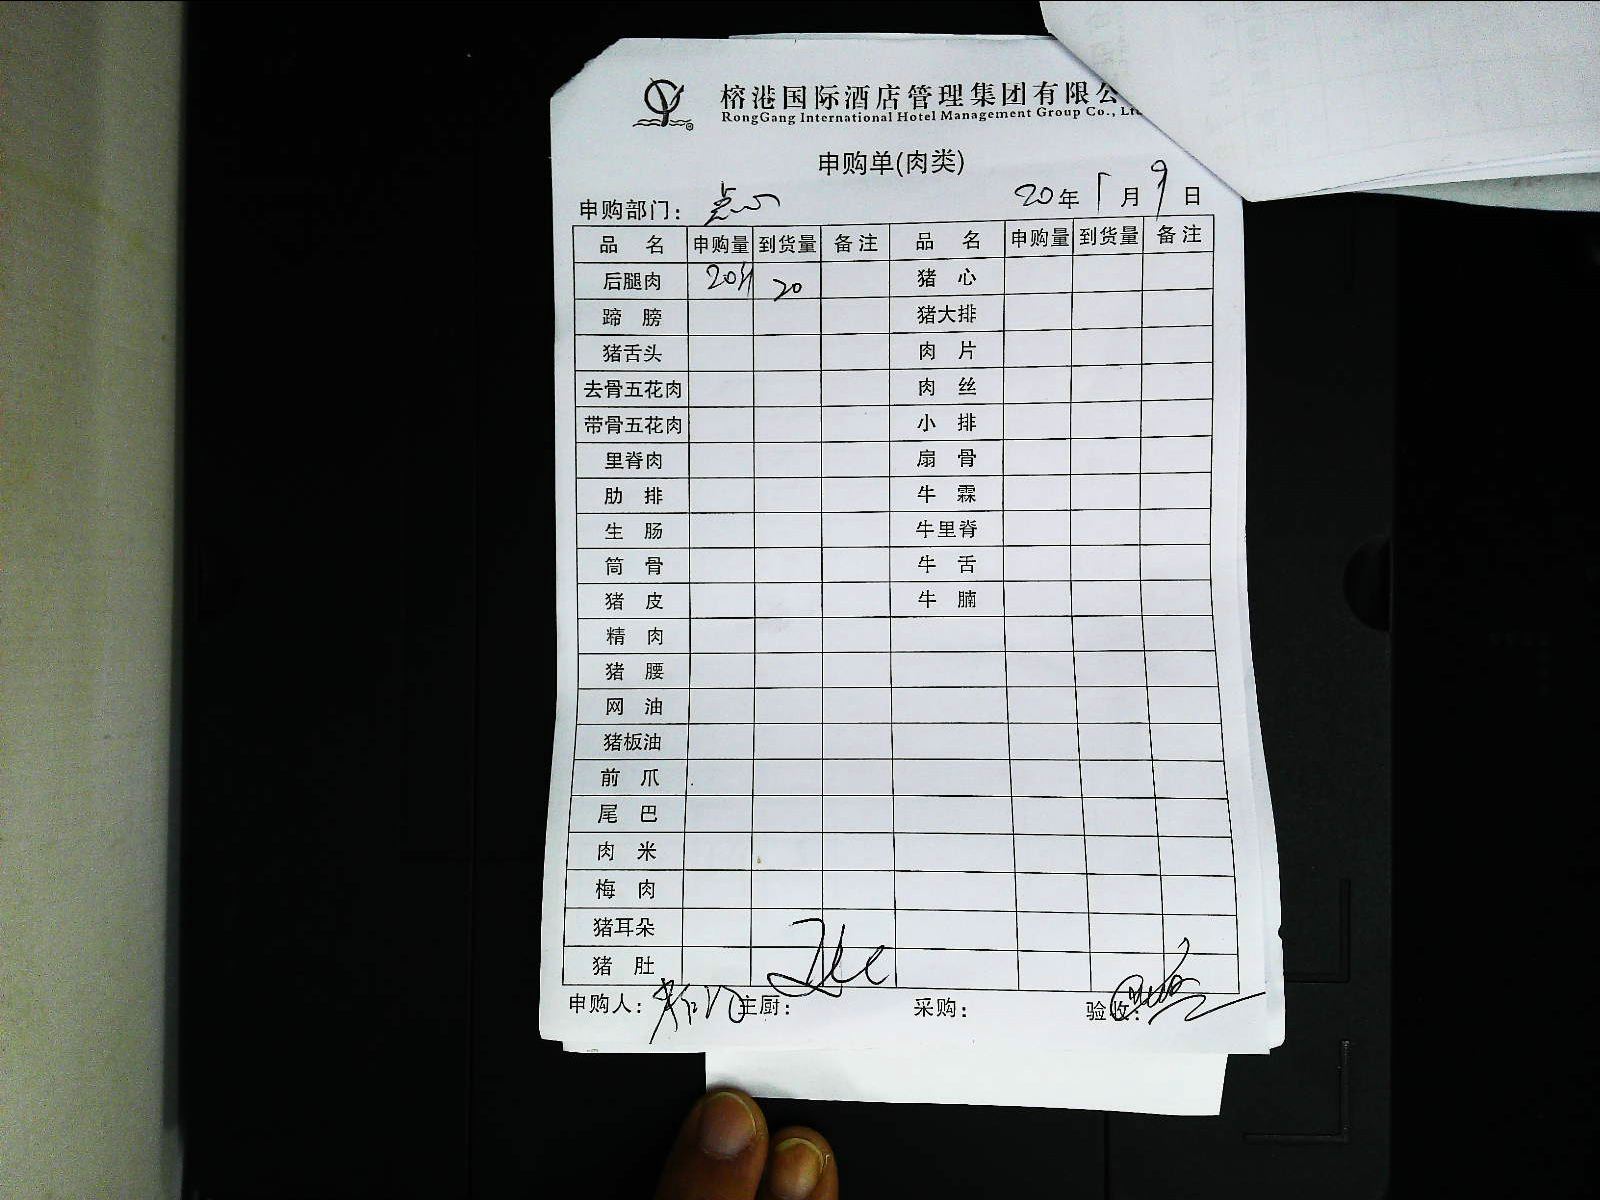 榕港国际酒店管理集团有限公
RongGang International Hotel Management Group Co., Ltd
申购单(肉类)
申购部门: 点心 20年1月9日
品名 申购量 到货量 备注 品名 申购量 到货量 备注
后腿肉 20斤 20 猪心
蹄膀 猪大排
猪舌头 肉片
去骨五花肉 肉丝
带骨五花肉 小排
里脊肉 扇骨
肋排 牛霖
生肠 牛里脊
筒骨 牛舌
猪皮 牛腩
精肉
猪腰
网油
猪板油
前爪
尾巴
肉米
梅肉
猪耳朵
猪肚
申购人: 主厨: 采购: 验收: